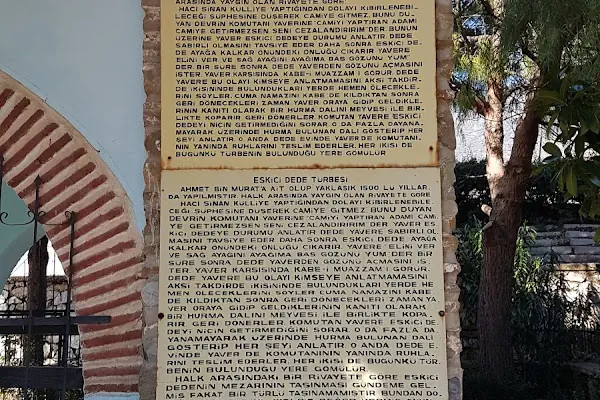 ARASINDA YAYGIN OLAN RİVAYETE GÖRE:
HACI SİNAN KÜLLİYE YAPTIĞINDAN DOLAYI KİBİRLENEBİ-
LECEĞİ ŞÜPHESİNE DÜŞEREK CAMİYE GİTMEZ. BUNU DU-
YAN DEVRİN KOMUTANI YAVERİNE CAMİYİ YAPTIRAN ADAMI
CAMİYE GETİRMEZSEN SENİ CEZALANDIRIRIM DER. BUNUN
ÜZERİNE YAVER ESKİCİ DEDEYE DURUMU ANLATIR. DEDE
SABIRLI OLMASINI TAVSİYE EDER DAHA SONRA ESKİCİ DE-
DE AYAĞA KALKAR ÖNÜNDEKİ ÖNLÜĞÜ ÇIKARIR YAVERE
ELİNİ VER VE SAĞ AYAĞINI AYAĞIMA BAS GÖZÜNÜ YUM
DER. BİR SÜRE SONRA DEDE YAVERDEN GÖZÜNÜ AÇMASINI
İSTER. YAVER KARŞISINDA KABE-İ MUAZZAM'I GÖRÜR. DEDE
YAVERE BU OLAYI KİMSEYE ANLATMAMASINI AKSİ TAKDİR-
DE İKİSİNİNDE BULUNDUKLARI YERDE HEMEN ÖLECEKLE-
RİNİ SÖYLER. CUMA NAMAZINI KABE DE KILDIKTAN SONRA
GERİ DÖNECEKLERİ ZAMAN YAVER ORAYA GİDİP GELDİKLE-
RİNİN KANITI OLARAK BİR HURMA DALINI MEYVESİ İLE BİR-
LİKTE KOPARIR GERİ DÖNERLER. KOMUTAN YAVERE ESKİCİ
DEDEYİ NİÇİN GETİRMEDİĞİNİ SORAR. O DA FAZLA DAYANA-
MAYARAK ÜZERİNDE HURMA BULUNAN DALI GÖSTERİP HER
ŞEYİ ANLATIR. O ANDA DEDE EVİNDE YAVER'DE KOMUTANI-
NIN YANINDA RUHLARINI TESLİM EDERLER. HER İKİSİ DE
BUGÜNKÜ TÜRBENİN BULUNDUĞU YERE GÖMÜLÜR
ESKİCİ DEDE TÜRBESİ
AHMET BİN MURAT'A AİT OLUP YAKLAŞIK 1500 LÜ YILLAR-
DA YAPILMIŞTIR. HALK ARASINDA YAYGIN OLAN RİVAYETE GÖRE
HACI SİNAN KÜLLİYE YAPTIĞINDAN DOLAYI KİBİRLENEBİLE-
CEĞİ ŞÜPHESİNE DÜŞEREK CAMİYE GİTMEZ. BUNU DUYAN
DEVRİN KOMUTANI YAVERİNE "CAMİYİ YAPTIRAN ADAMI CAMİ-
YE GETİRMEZSEN SENİ CEZALANDIRIRIM" DER. YAVER ES-
KİCİ DEDEYE DURUMU ANLATIR. DEDE YAVERE SABIRLI OL-
MASINI TAVSİYE EDER. DAHA SONRA ESKİCİ DEDE AYAĞA
KALKAR ÖNÜNDEKİ ÖNLÜĞÜNÜ ÇIKARIR. YAVERE "ELİNİ VER
VE SAĞ AYAĞINI AYAĞIMA BAS GÖZÜNÜ YUM" DER. BİR
SÜRE SONRA DEDE YAVERDEN GÖZÜNÜ AÇMASINI İS-
TER. YAVER KARŞISINDA KABE-İ MUAZZAM'I GÖRÜR.
DEDE YAVERE BU OLAYI KİMSEYE ANLATMAMASINI
AKSİ TAKDİRDE İKİSİNİNDE BULUNDUKLARI YERDE HE-
MEN ÖLECEKLERİNİ SÖYLER. CUMA NAMAZINI KABE-
DE KILDIKTAN SONRA GERİ DÖNECEKLERİ ZAMAN YA-
VER ORAYA GİDİP GELDİKLERİNİN KANITI OLARAK
BİR HURMA DALINI MEYVESİ İLE BİRLİKTE KOPA-
RIR GERİ DÖNERLER. KOMUTAN YAVERE ESKİCİ DE-
DEYİ NİÇİN GETİRMEDİĞİNİ SORAR. O FAZLA DA-
YANAMAYARAK ÜZERİNDE HURMA BULUNAN DALI
GÖSTERİP HER ŞEYİ ANLATIR. O ANDA DEDE E-
VİNDE YAVER DE KOMUTANININ YANINDA RUHLA-
RINI TESLİM EDERLER. HER İKİSİ DE BUGÜNKÜ TÜR-
BENİN BULUNDUĞU YERE GÖMÜLÜR.
HALK ARASINDAKİ BİR RİVAYETE GÖRE ESKİCİ
DEDENİN MEZARININ TAŞINMASI GÜNDEME GEL-
MİŞ FAKAT BİR TÜRLÜ TAŞINAMAMIŞTIR BUNDAN DO-